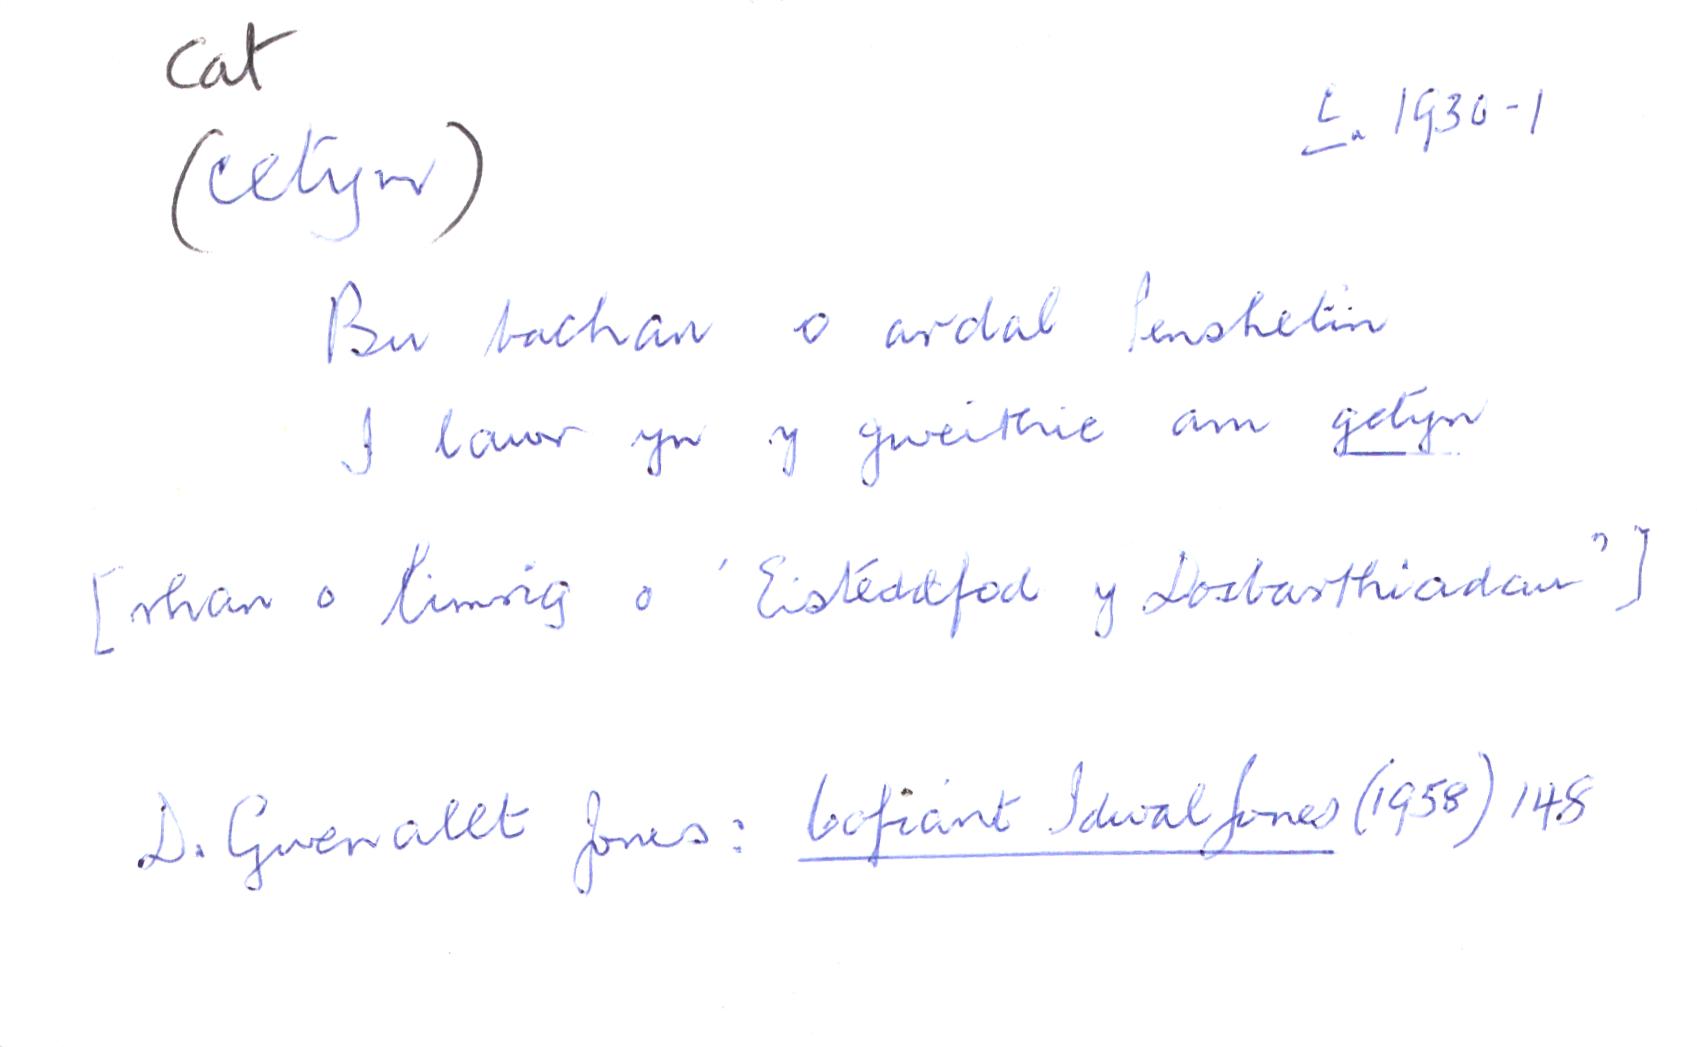 cat
(cetyn)
c. 1930-1
Bu bachan o ardal Penshetin
I lawr yn y gweithie am getyn
[rhan o limrig o 'Eisteddfod y Dosbarthiadau']
D. Gwenallt Jones: Cofiant Idwal Jones (1958) 148